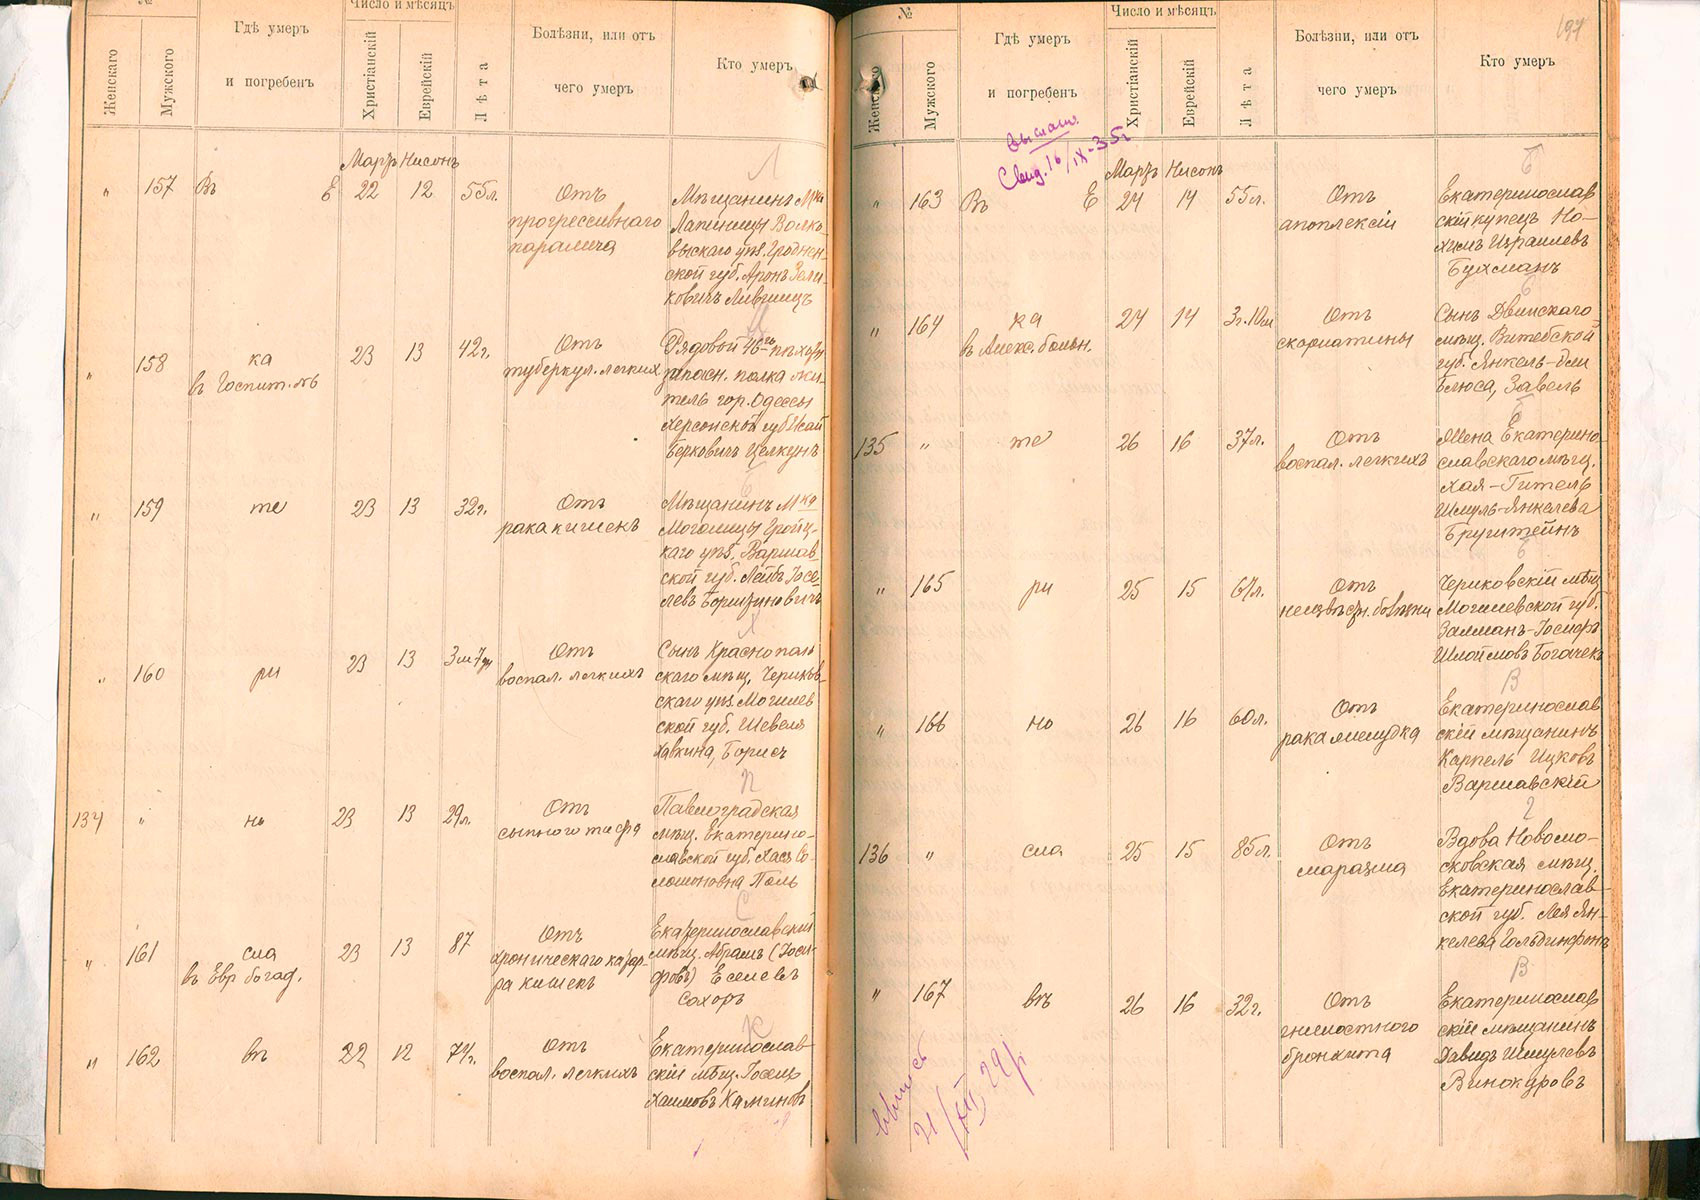 №
Число и мѣсяцъ
Женскаго
Мужского
Гдѣ умеръ
и погребенъ
Христіанскій
Еврейскій
Лѣта
Болѣзни, или отъ
чего умеръ
Кто умеръ
Мартъ Нисонъ
Л
" 157 Въ Е 22 12 55л.
Отъ
прогрессивнаго
паралича
Мѣщанинъ Мка
Лапиницы Волко-
выскаго уѣз. Гроднен-
ской губ. Аронъ Зели-
ковичъ Лившицъ
" 158 ка 23 13 42г.
в Госпит. лѣ
Отъ
туберкул. легкихъ
Рядовой 46го пѣхотн
запасн. полка жи-
тель гор. Одессы
Херсонской губ Исай
Берковичъ Целкунъ
Б
" 159 те 23 13 32г.
Отъ
рака кишекъ
Мѣщанинъ Мка
Могольницы Гройц-
каго уѣз. Варшав
ской губ. Лейбъ Іосе-
левъ
Х
" 160 ри 23 13 3м 7дн
Отъ
воспал. легкихъ
Сынъ Краснополь
скаго мѣщ. Чериков-
скаго уѣз. Могилев
ской губ. Шевеля
Хавкина, Борисъ
П
134 " нь 23 13 29л.
Отъ
сыпного тифа
Павлоградская
мѣщ. Екатерино-
славской губ. Хася Со-
ломоновна Поль
С
" 161 сла 23 13 87
в Евр богад.
Отъ
хроническаго катар-
ра кишекъ
Екатеринославскій
мѣщ. Абрамъ (Іоси-
фовъ) Еселевъ
Сохоръ
К
" 162 въ 22 12 74г.
Отъ
воспал. легкихъ
Екатеринослав-
скій мѣщ. Іосель
Хаимовъ Каминов
№
Число и мѣсяцъ
197
Женскаго
Мужского
Гдѣ умеръ
и погребенъ
Христіанскій
Еврейскій
Лѣта
Болѣзни, или отъ
чего умеръ
Кто умеръ
Свид. 16/IX-35г
Мартъ Нисонъ
Б
" 163 Въ Е 24 14 55л.
Отъ
апоплексіи
Екатеринослав
скій купецъ Но-
химъ Израилевъ
Бухманъ
Б
" 164 ка 24 14 3г. 10м
в Алекс. больн.
Отъ
скарлатины
Сынъ Двинскаго
мѣщ. Витебской
губ. Янкель-Эли
Блюса, Завель
Б
135 " те 26 16 37л.
Отъ
воспал. легкихъ
Жена Екатерино-
славскаго мѣщ.
Хая-Гитель
Шмуль-Янкелева
Бруштейнъ
Б
" 165 ри 25 15 67л.
Отъ
неизвѣстн. болѣзни
Чериковскій мѣщ
Могилевской губ.
Залманъ-Іосифъ
Шлоймовъ Богачекъ
В
" 166 но 26 16 60л.
Отъ
рака желудка
Екатеринослав
скій мѣщанинъ
Карпель Ицковъ
Варшавскій
Г
136 " сла 25 15 85л.
Отъ
маразма
Вдова Новомо-
сковская мѣщ.
Екатеринослав-
ской губ. Лея Ян-
келева Гольдинфонъ
В
" 167 въ 26 16 32г.
Отъ
гнилостного
бронхита
Екатеринослав
скій мѣщанинъ
Давидъ Шмулевъ
Винокуровъ